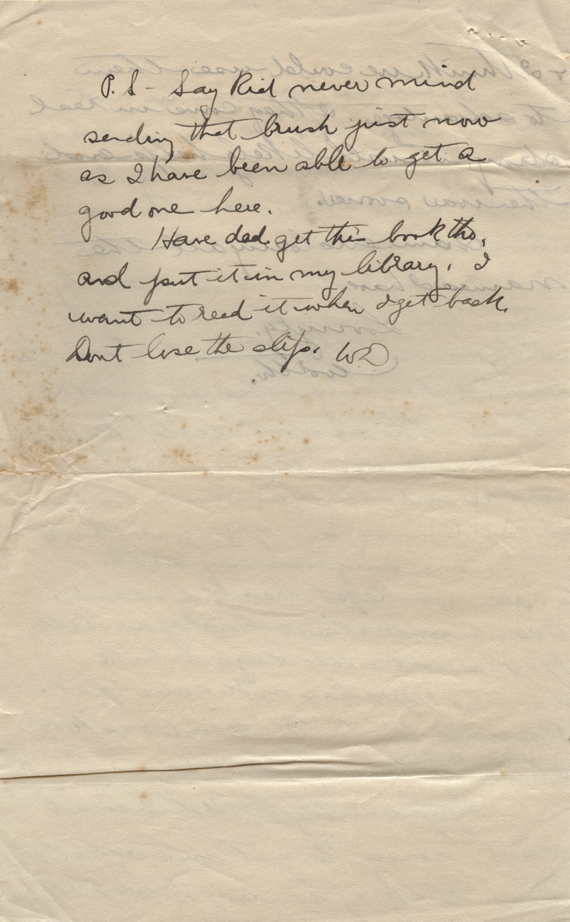 P.S- Say Kid never mind
sending that brush just now
as I have been able to get a
good one here.
Have dad get this book tho,
and put it in my library. I
want to read it when I get back.
Dont lose the slip. WD